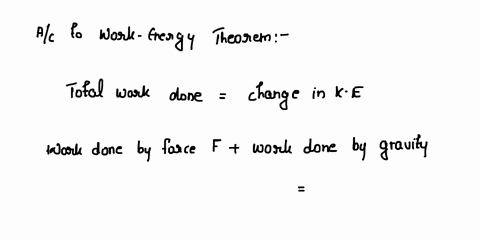 A/c to Work-Energy Theorem:-
Total work done = change in K.E
Work done by force F + work done by gravity
=